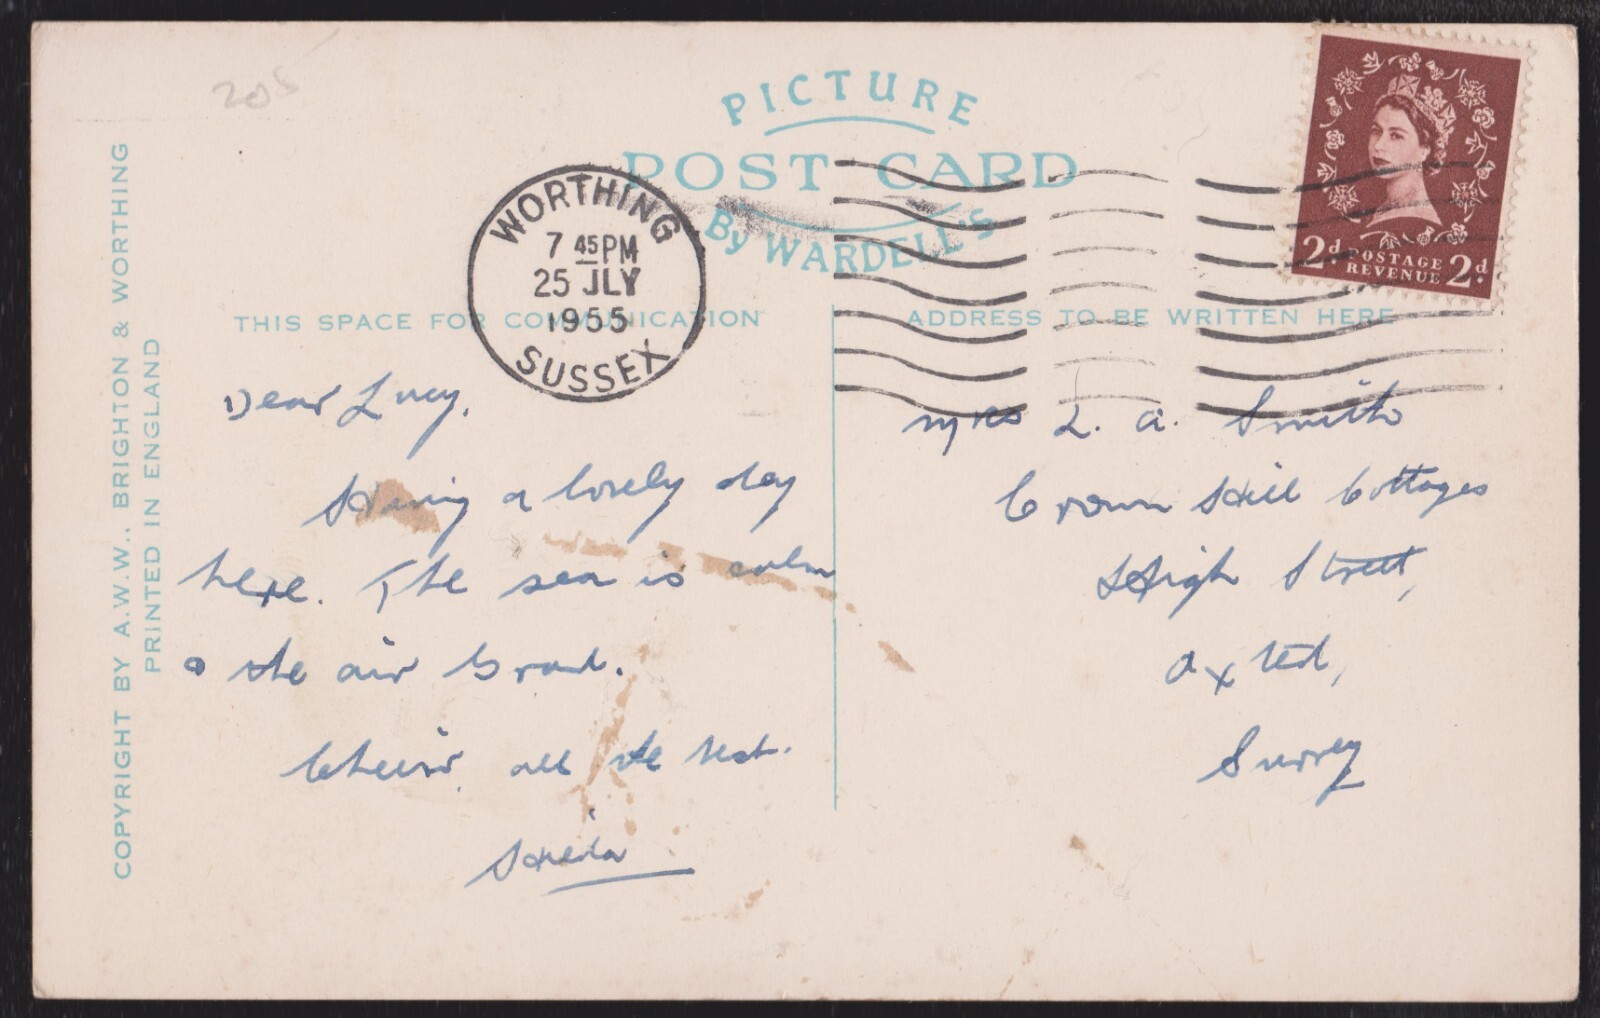 205
PICTURE
POST CARD
By WARDELL'S
COPYRIGHT BY A.W.W., BRIGHTON & WORTHING
PRINTED IN ENGLAND
WORTHING
7 45 PM
25 JLY
1955
SUSSEX
2d. POSTAGE REVENUE 2d.
THIS SPACE FOR COMMUNICATION
Dear Lucy,
Having a lovely day
here. The sea is calm
& the air grand.
Cheerio, all the best.
Sheila
ADDRESS TO BE WRITTEN HERE
Mrs L. A. Smith
Crown Hill Cottages
High Street,
Oxted,
Surrey